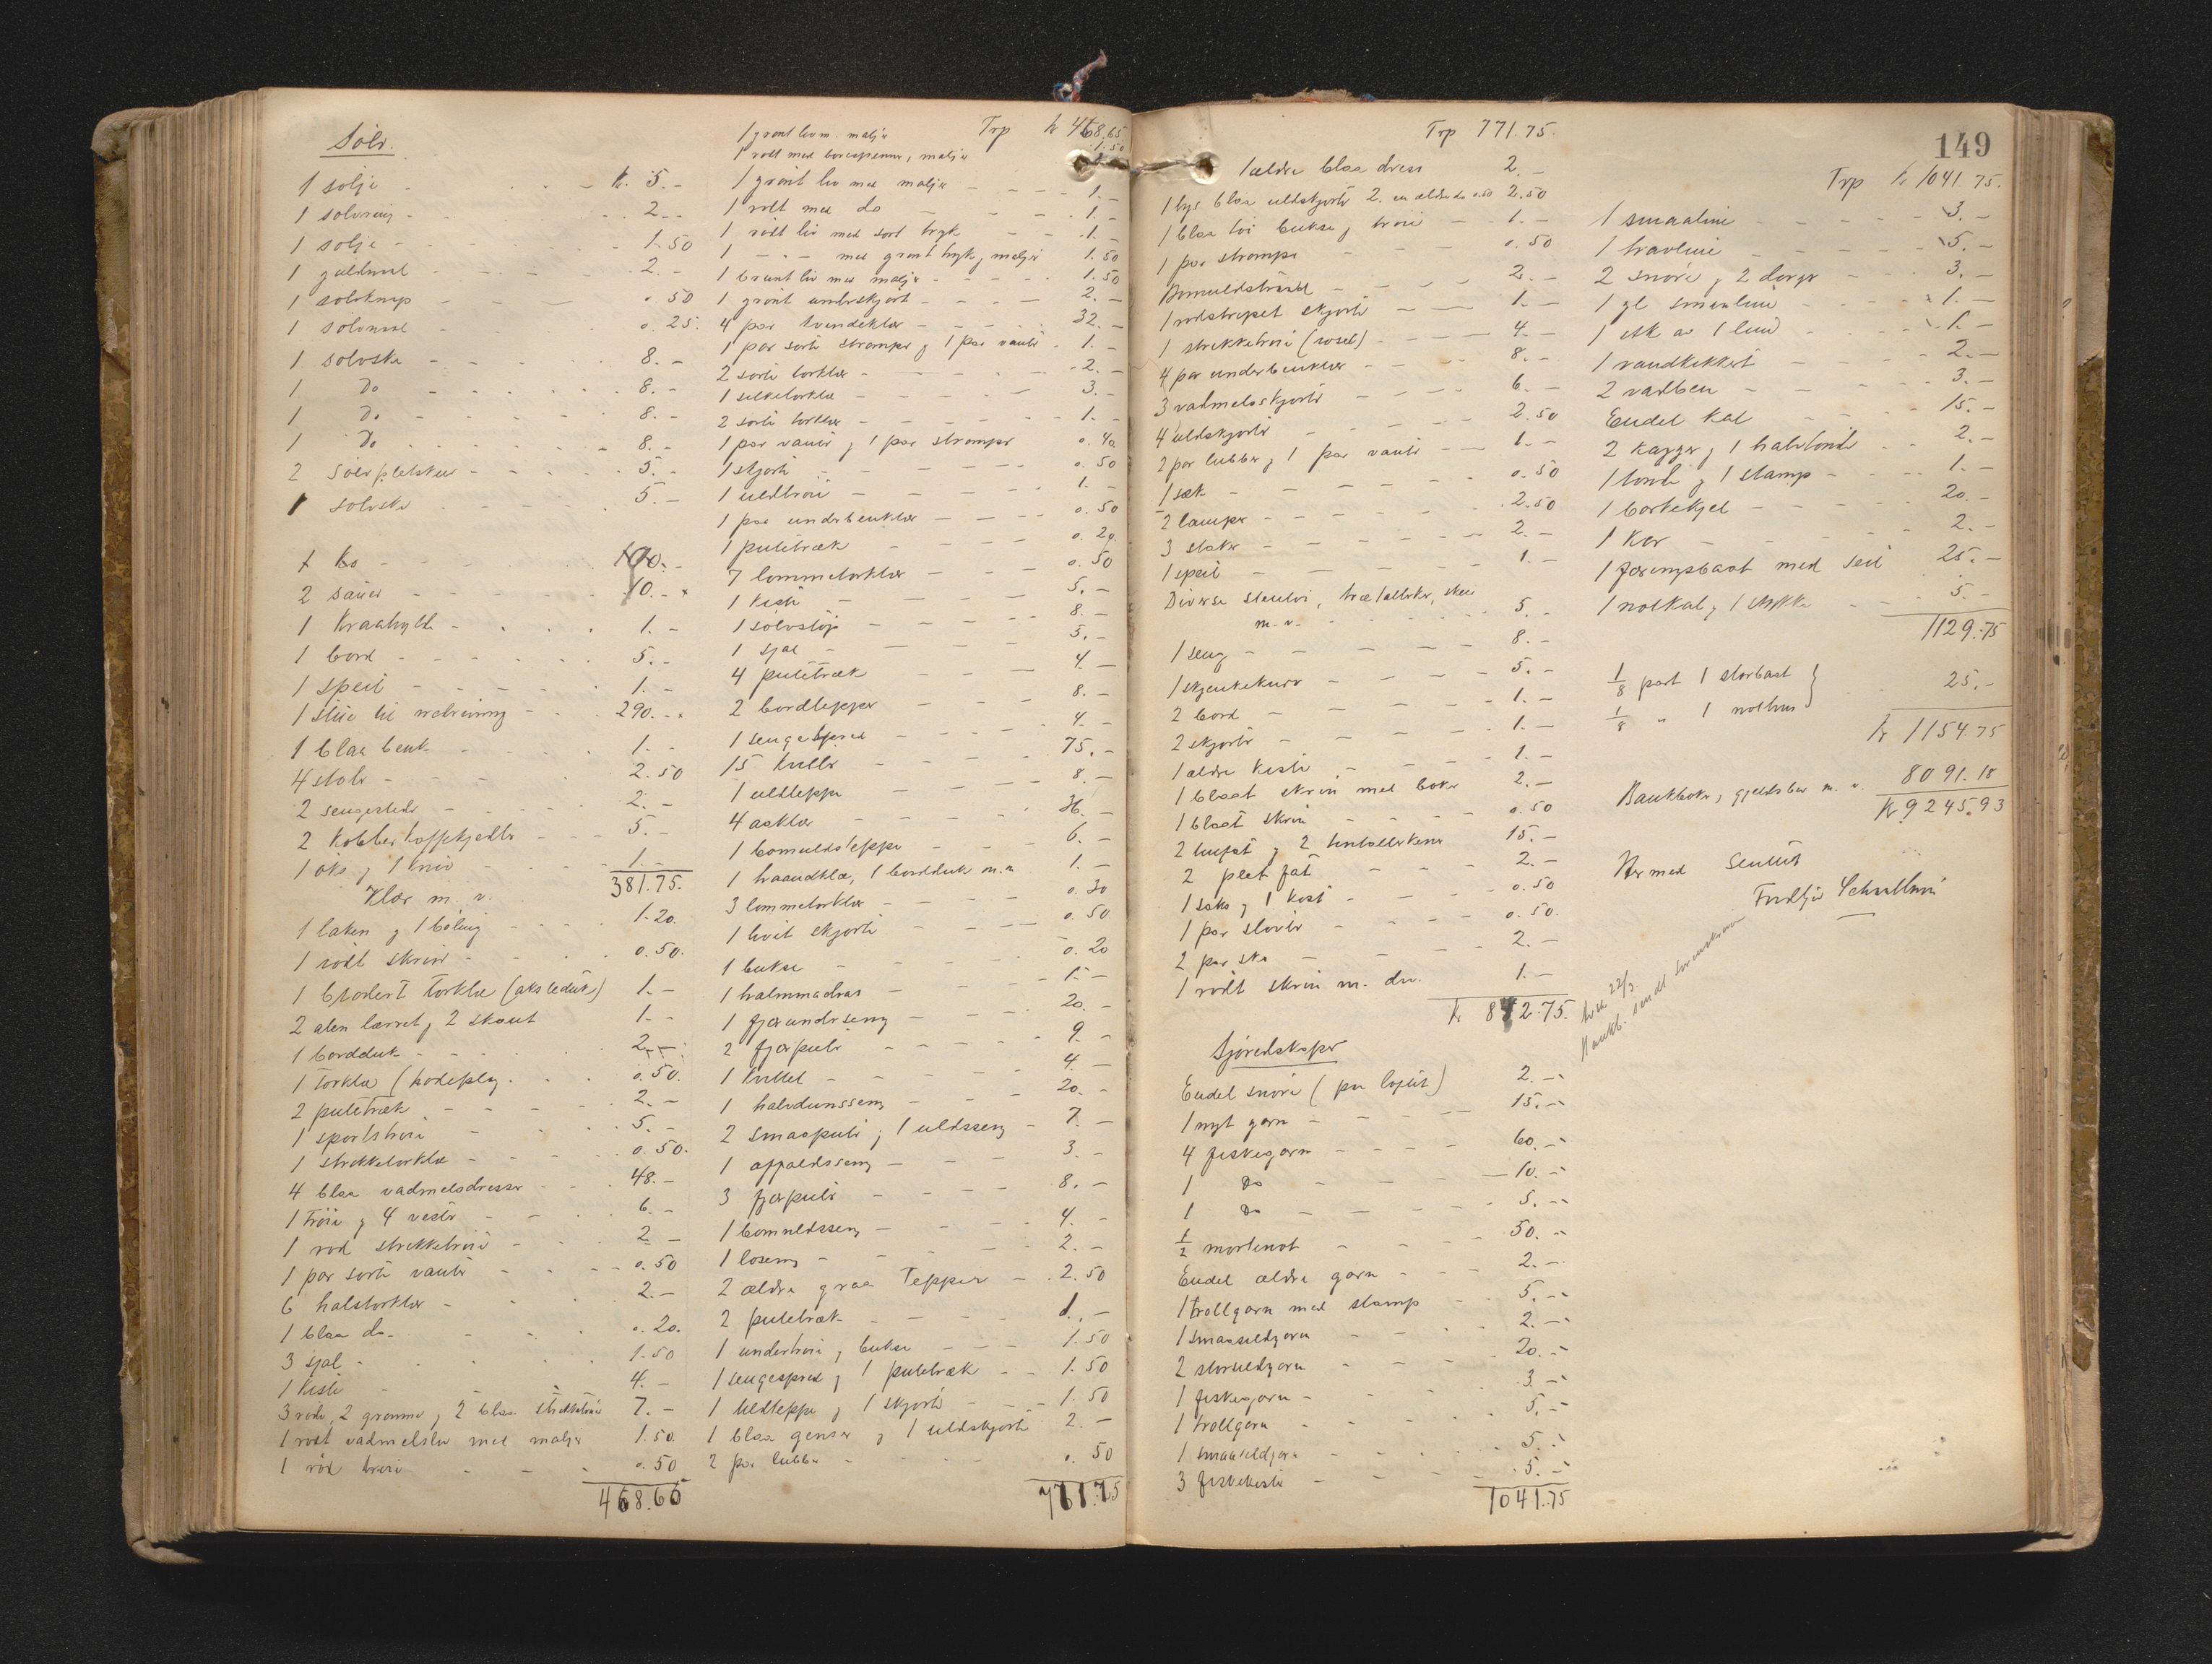 Sölv.
1 sölje - kr. 5.-
1 sölvring - 2.-
1 sölje - 1.50
1 guldnaal - 2.-
1 sölvknap - 0.50
1 sölvnaal 0.25.
1 sölvske - 8.-
1 Do - 8.-
1 Do - 8.-
1 Do 8.-
2 sölvpletskeer - 5.-
1 sölvske 5.-
1 ko - 100.-
2 sauer - 10.-
1 kraahylde - 1.-
1 bord - 5.-
1 speil - 1.-
1 stue til nedrivning - 290.-
1 blaa benk - 1.-
4 stole - 2.50
2 sengesteder - 2.-
2 kobberkaffekjedler - 5.-
1 öks og 1 kniv - 1.-
381.75.
Klær m. v.
1 laken og 1 - 1.20.
1 rödt skrin - 0.50.
1 broderet törklæ (aksleduk) 1.-
2 alen lærret og 2 skaut 1.-
1 bordduk - 2.-
1 törklæ (hodeplag 0.50.
2 putetræk - 2.-
1 sportströie 5.-
1 strikketörklæ - 0.50.
4 blaa vadmelsdresser - 48.-
1 tröie og 4 vester - 6.-
1 röd strikketröie - 2.-
1 par sorte vanter - 0.50
6 halstörklær - 2.-
1 blaa do - 0.20.
3 sjal - 1.50
1 kiste - 4.-
3 röde, 2 grönne og 2 blaa strikketröier 7.-
1 rödt vadmelsliv med maljer 1.50.
1 röd tröie - 0.50
468.65
Trp kr 468.65
1 grönt liv m. maljer
1 rödt med maljer 1.50
1 grönt liv med maljer - 1.-
1 rödt med do - 1.-
1 rödt liv med sort tryk - 1.-
1 -"- med grönt tryk og maljer 1.50
1 brunt liv med maljer - 1.50
1 grönt underskjört - 2.-
4 par kvindeklær - 32.-
1 par sorte strömper og 1 par vanter - 1.-
2 sorte törklær - 2.-
1 silketörklæ - 3.-
2 sorte törklær - 1.-
1 par vanter og 1 par strömper 0.40
1 skjorte - 0.50
1 uldtröie - 1.-
1 par underbenklær - 0.50
1 putetræk - 0.20.
7 lommetörklær - 0.50
1 kiste - 5.-
1 sölvslöife - 8.-
1 sjal - 5.-
4 putetræk - 4.-
2 bordtepper - 8.-
1 sengespred - 4.-
15 kvitler - 75.-
1 uldteppe - 8.-
4 aaklær - 36.-
1 bomuldsteppe - 6.-
1 haandklæ, 1 bordduk m.m 1.-
3 lommetörklær - 0.30
1 hvit skjorte - 0.50
1 bukse - 0.20
1 halmmadras - 1.-
1 fjærunderseng - 20.-
2 fjærputer - 9.-
1 kvittel - 4.-
1 halvdunsseng - 20.-
2 smaaputer og 1 uldsseng - 7.-
1 affaldsseng - 3.-
3 fjærputer - 8.-
1 bomuldsseng - 4.-
1 loseng - 2.-
2 ældre graa Tepper - 2.50
2 putetræk - 1.-
1 undertröie og bukse - 1.50
1 sengespred og 1 putetræk - 1.50
1 uldteppe og 1 skjorte - 1.50
1 blaa genser og 1 uldskjorte 2.-
2 par lubber - 0.50
771.75
Trp 771.75.
1 ældre blaa dress 2.-
1 lys blaa uldskjorte 2. en ældre do 0.50 2.50
1 blaa töi bukse og tröie - 1.-
1 par strömper - 0.50
2.-
1 rödstripet skjorte - 1.-
1 strikketröie (roset) - 4.-
4 par underbenklær - 8.-
3 vadmelsskjorter - 6.-
4 uldskjorter - 2.50
2 par lubber og 1 par vanter - 1.-
1 sæk - 0.50
2 lamper - 2.50
3 staker - 2.-
1 speil - 1.-
Diverse stentöi, trætallerker, skeer
m. v. - 5.-
1 seng - 8.-
1 skjenkekurv - 5.-
2 bord - 1.-
2 skjorter - 1.-
1 ældre kiste - 1.-
1 blaat skrin med böker 2.-
1 blaat skrin - 0.50
2 tinfat og 2 tintallerkener 15.-
2 plet fat - 2.-
1 saks og 1 kost - 0.50
1 par stövler - 0.50.
2 par sko - 2.-
1 rödt skrin m. div. 1.-
kr 842.75.
Sjöredskaper
Endel snöre (paa loftet) 2.-
1 nyt garn - 15.-
4 fiskegarn - 60.-
1 Do - 10.-
1 Do - 5.-
1/2 mortenot - 50.-
Endel ældre garn - 2.-
1 trollgarn med stamp 5.-
1 smaasildgarn - 2.-
2 storsildgarn - 20.-
1 fiskegarn - 3.-
1 trollgarn - 5.-
1 smaasildgarn 5.-
3 fiskekister - 5.-
1041.75
149
Trp kr 1041.75.
1 smaaline - 3.-
1 havline - 5.-
2 snöre og 2 dorger - 3.-
1 gl smaaline 1.-
1 stk av 1 line 1.-
1 vandkikkert - 2.-
2 vadben - 3.-
Endel kal - 15.-
2 kagger og 1 halvtönde 2.-
1 tönde og 1 stamp - 1.-
1 barkekjel 20.-
1 kar - 2.-
1 færingsbaat med seil 25.-
1 notkal og 1 stykke - 5.-
1129.75
1/8 part 1 storbaat
1/8 " 1 nothus } 25.-
kr 1154.75
Bankböker, gjeldsbev m. v. 8091.18
kr 9245.93
Hermed sluttet
Fredtjov
22/3.
Bankb. sendt sorenskriver